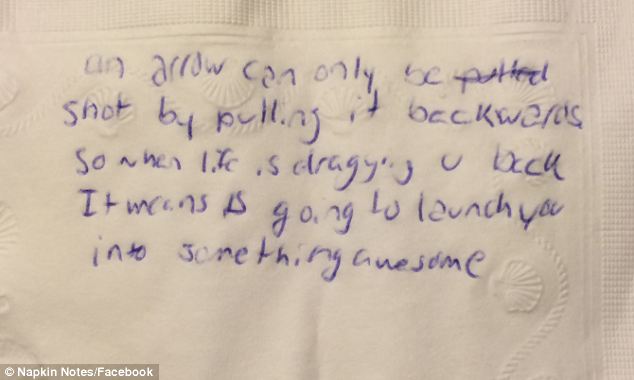 an arrow can only be pulled
shot by pulling it backwards
so when life is dragging u back
It means is going to launch you
into something awesome
© Napkin Notes/Facebook